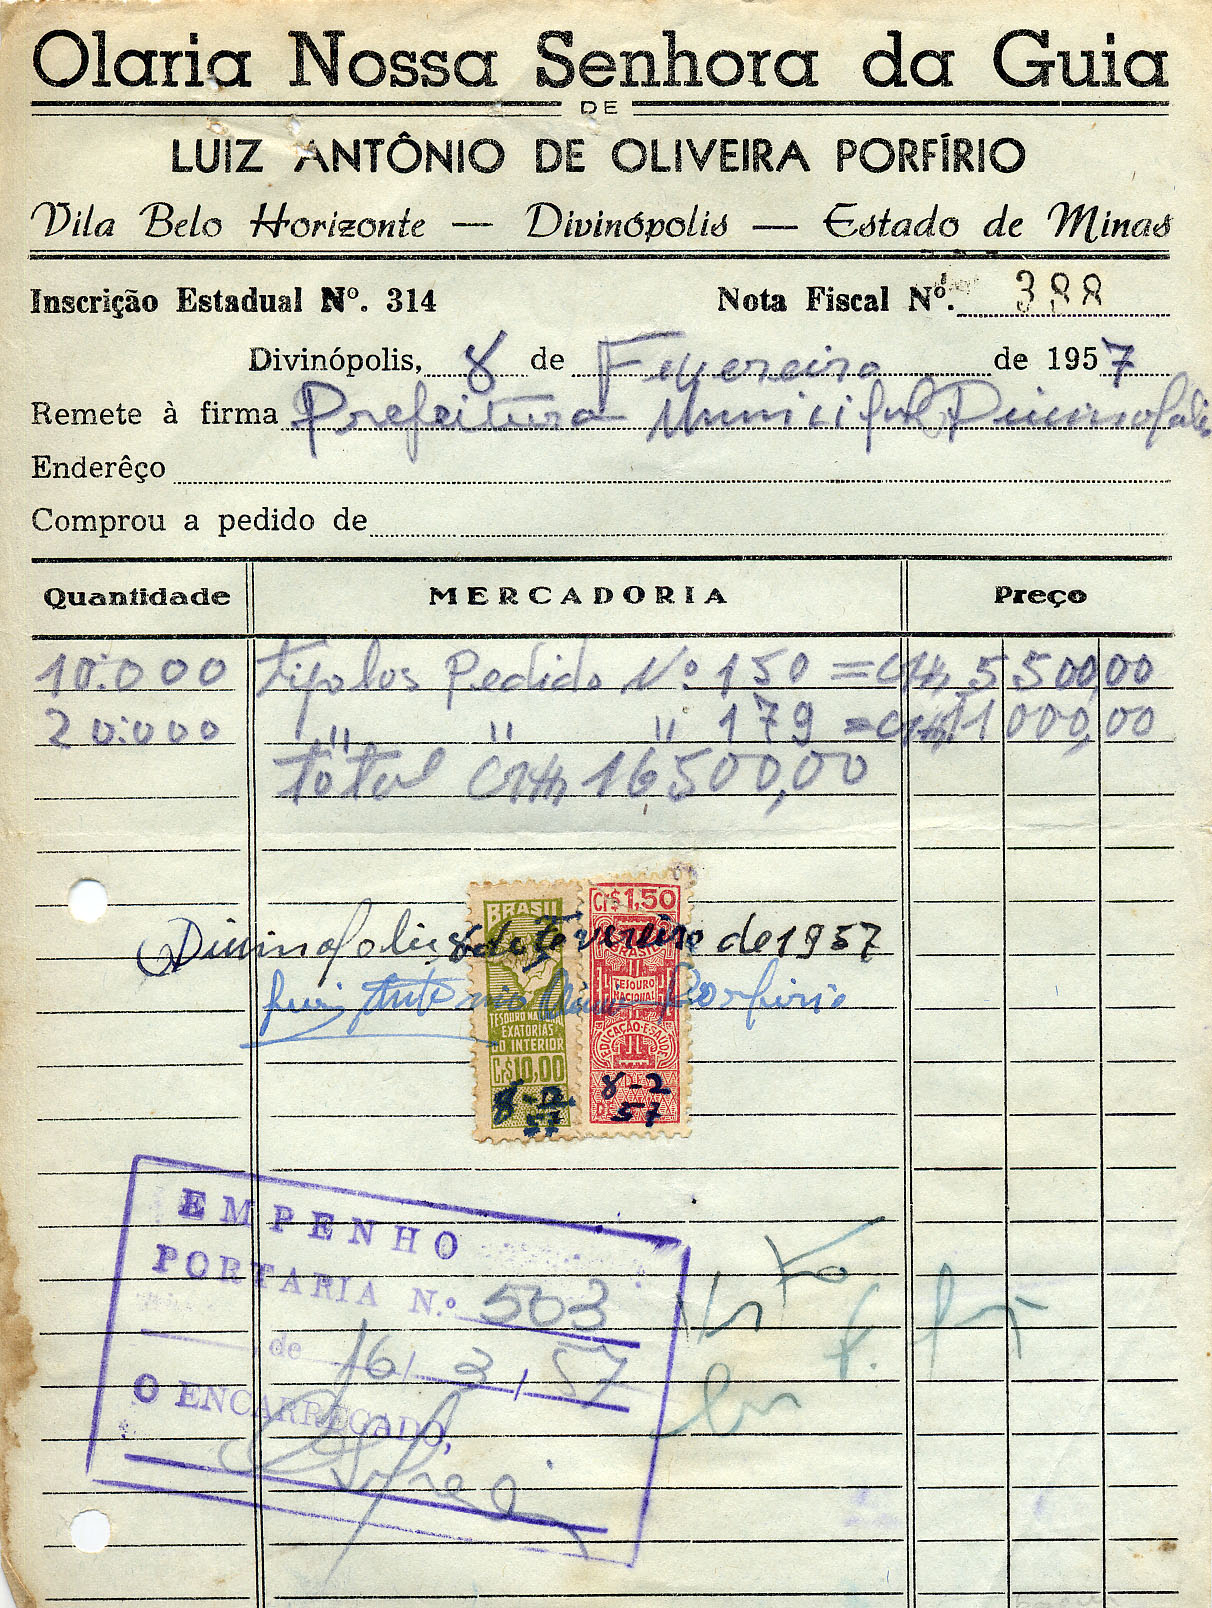 Olaria Nossa Senhora da Guia
DE
LUIZ ANTÔNIO DE OLIVEIRA PORFÍRIO
Vila Belo Horizonte — Divinópolis — Estado de Minas
Inscrição Estadual Nº. 314 Nota Fiscal Nº. 388
Divinópolis, 8 de Fevereiro de 1957
Remete à firma Prefeitura Municipal Divinopolis
Enderêço
Comprou a pedido de
Quantidade MERCADORIA Preço
10.000 tijolos Pedido Nº 150 = Cr$ 5.500,00
20.000 " " " 179 = Cr$ 11000,00
total Cr$ 16500,00
BRASIL Cr$1,50
Divinopolis, 8 de Fevereiro de 1957
BRASIL
TESOURO NACIONAL
Luiz Antonio Porfirio
EXATORIAS
DO INTERIOR
EDUCAÇÃO E SAUDE
Cr$10,00
8-2-57 8-2
57
EMPENHO
PORTARIA N.º 503
de 16/3/57
O ENCARREGADO,